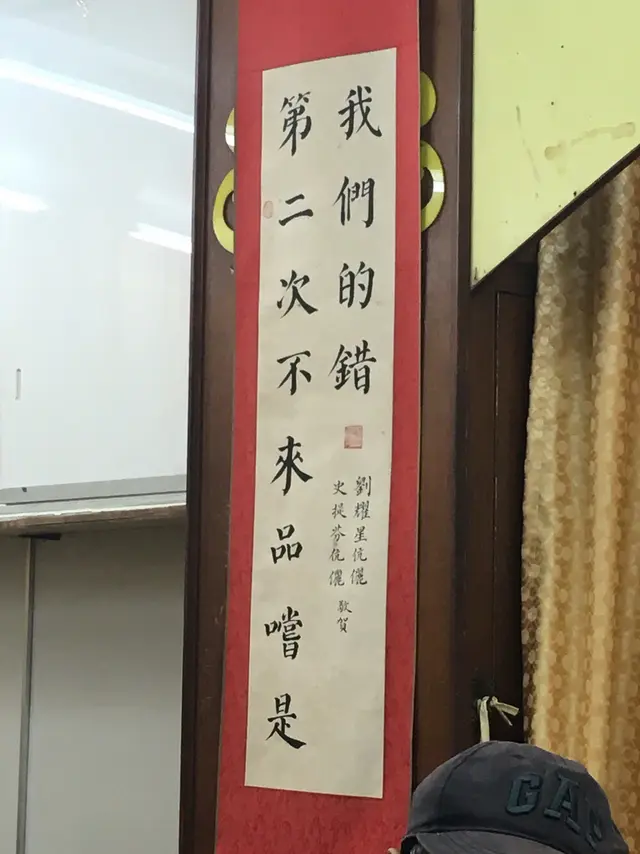 第二次不來品嚐是
我們的錯
史提芬伉儷
劉耀星伉儷
敬賀
GAP